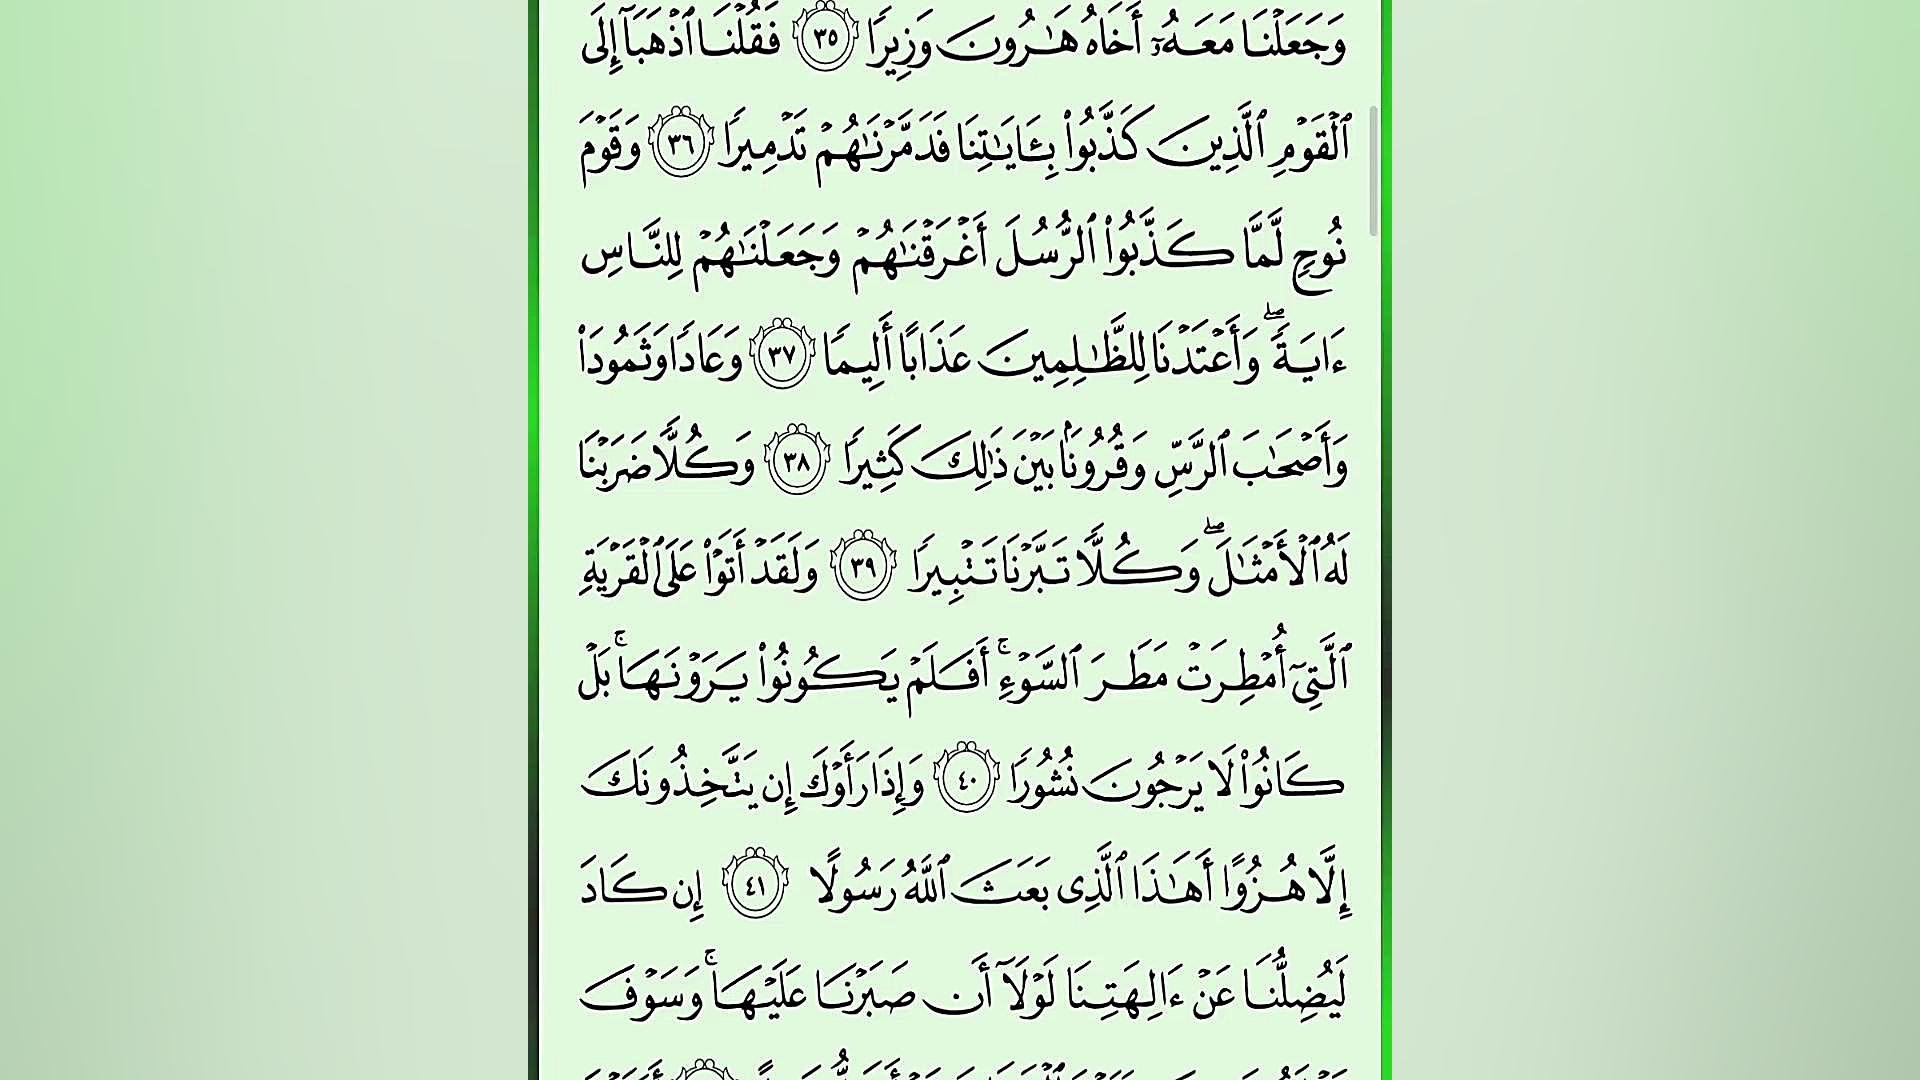 وَجَعَلْنَا مَعَهُۥٓ أَخَاهُ هَـٰرُونَ وَزِيرًا ٣٥ فَقُلْنَا ٱذْهَبَآ إِلَى
ٱلْقَوْمِ ٱلَّذِينَ كَذَّبُوا۟ بِـَٔايَـٰتِنَا فَدَمَّرْنَـٰهُمْ تَدْمِيرًا ٣٦ وَقَوْمَ
نُوحٍ لَّمَّا كَذَّبُوا۟ ٱلرُّسُلَ أَغْرَقْنَـٰهُمْ وَجَعَلْنَـٰهُمْ لِلنَّاسِ
ءَايَةً ۖ وَأَعْتَدْنَا لِلظَّـٰلِمِينَ عَذَابًا أَلِيمًا ٣٧ وَعَادًا وَثَمُودَا۟
وَأَصْحَـٰبَ ٱلرَّسِّ وَقُرُونًۢا بَيْنَ ذَٰلِكَ كَثِيرًا ٣٨ وَكُلًّا ضَرَبْنَا
لَهُ ٱلْأَمْثَـٰلَ ۖ وَكُلًّا تَبَّرْنَا تَتْبِيرًا ٣٩ وَلَقَدْ أَتَوْا۟ عَلَى ٱلْقَرْيَةِ
ٱلَّتِىٓ أُمْطِرَتْ مَطَرَ ٱلسَّوْءِ ۚ أَفَلَمْ يَكُونُوا۟ يَرَوْنَهَا ۚ بَلْ
كَانُوا۟ لَا يَرْجُونَ نُشُورًا ٤٠ وَإِذَا رَأَوْكَ إِن يَتَّخِذُونَكَ
إِلَّا هُزُوًا أَهَـٰذَا ٱلَّذِى بَعَثَ ٱللَّهُ رَسُولًا ٤١ إِن كَادَ
لَيُضِلُّنَا عَنْ ءَالِهَتِنَا لَوْلَآ أَن صَبَرْنَا عَلَيْهَا ۚ وَسَوْفَ